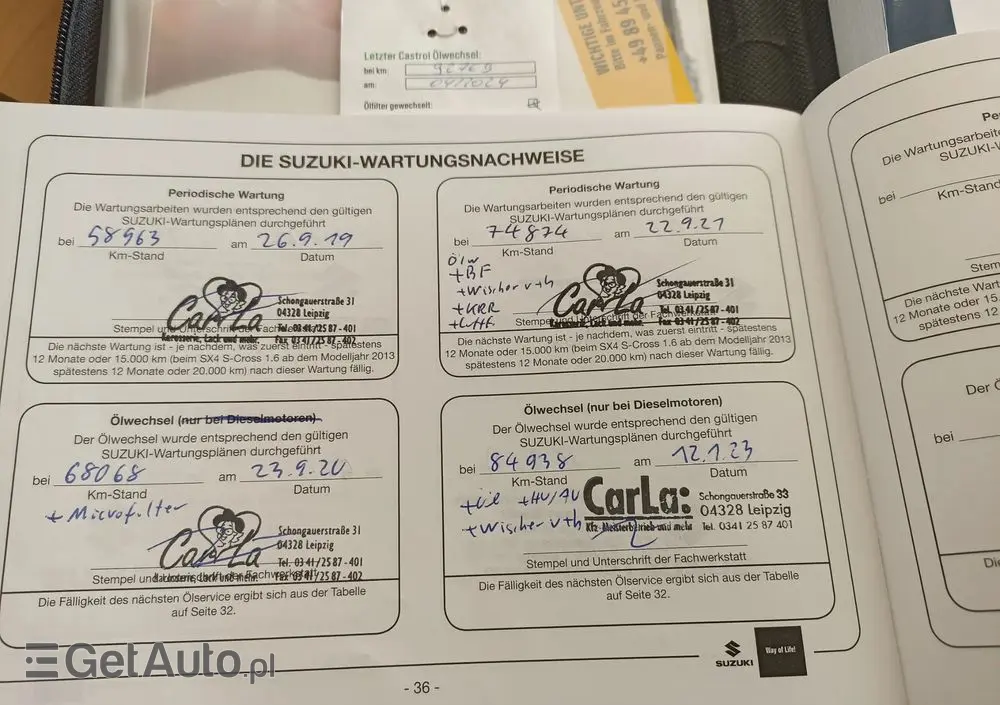 Letzter Castrol Ölwechsel:
bei km:
am: 04/2024
Ölfilter gewechselt:
WICHTIGE
+49 89 45
Bitte im
DIE SUZUKI-WARTUNGSNACHWEISE
Periodische Wartung
Die Wartungsarbeiten wurden entsprechend den gültigen
SUZUKI-Wartungsplänen durchgeführt
bei 58963 am 26.9.19
Km-Stand Datum
CarLa
Schongauerstraße 31
04328 Leipzig
Tel. 03 41/25 87 - 401
Fax 03 41/25 87 - 402
Karosserie, Lack und mehr.
Stempel und Unterschrift der Fachwerkstatt
Die nächste Wartung ist - je nachdem, was zuerst eintritt - spätestens
12 Monate oder 15.000 km (beim SX4 S-Cross 1.6 ab dem Modelljahr 2013
spätestens 12 Monate oder 20.000 km) nach dieser Wartung fällig.
Periodische Wartung
Die Wartungsarbeiten wurden entsprechend den gültigen
SUZUKI-Wartungsplänen durchgeführt
bei 74874 am 22.9.21
Km-Stand Datum
Ölw
+BF
+Wischer v+h
+KRR
CarLa
Schongauerstraße 31
04328 Leipzig
Tel. 03 41/25 87 - 401
Fax 03 41/25 87 - 402
Karosserie, Lack und mehr.
Stempel und Unterschrift der Fachwerkstatt
Die nächste Wartung ist - je nachdem, was zuerst eintritt - spätestens
12 Monate oder 15.000 km (beim SX4 S-Cross 1.6 ab dem Modelljahr 2013
spätestens 12 Monate oder 20.000 km) nach dieser Wartung fällig.
Ölwechsel (nur bei Dieselmotoren)
Der Ölwechsel wurde entsprechend den gültigen
SUZUKI-Wartungsplänen durchgeführt
bei 68068 am 23.9.20
Km-Stand Datum
+ Microfilter
CarLa
Schongauerstraße 31
04328 Leipzig
Tel. 03 41/25 87 - 401
Fax 03 41/25 87 - 402
Karosserie, Lack und mehr.
Stempel und Unterschrift der Fachwerkstatt
Die Fälligkeit des nächsten Ölservice ergibt sich aus der Tabelle
auf Seite 32.
Ölwechsel (nur bei Dieselmotoren)
Der Ölwechsel wurde entsprechend den gültigen
SUZUKI-Wartungsplänen durchgeführt
bei 84938 am 12.1.23
Km-Stand Datum
+HU/AU
+Wischer v+h
CarLa:
Kfz-Meisterbetrieb und mehr
Schongauerstraße 33
04328 Leipzig
Tel. 0341 25 87 401
Stempel und Unterschrift der Fachwerkstatt
Die Fälligkeit des nächsten Ölservice ergibt sich aus der Tabelle
auf Seite 32.
SUZUKI
Way of Life!
- 36 -
Die Wartungsarbeiten
SUZUKI-W
bei
Km-Stand
Stem
Die nächste Wartung
12 Monate oder 15
spätestens 12
Der Ö
bei
GetAuto.pl